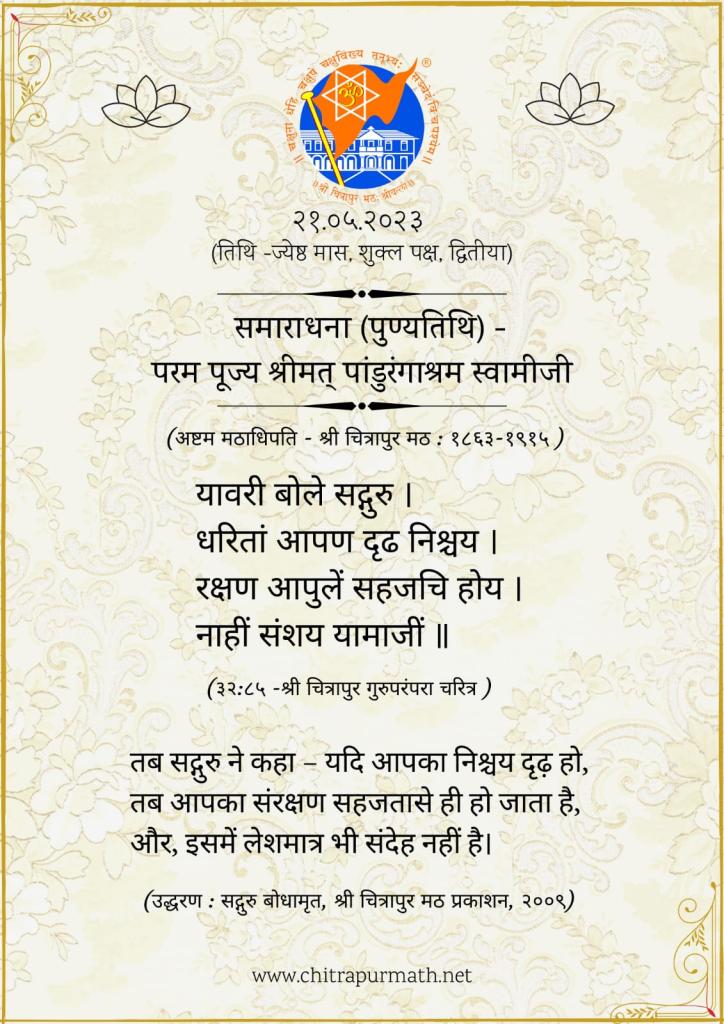 ॥ चक्षुनो धेहि चक्षुषे चक्षुर्विख्यै तनूभ्यः सञ्चेदं वि च पश्येम ॥
®
॥ श्री चित्रापुर मठः श्रीवल्ली ॥
२१.०५.२०२३
(तिथि -ज्येष्ठ मास, शुक्ल पक्ष, द्वितीया)
समाराधना (पुण्यतिथि) -
परम पूज्य श्रीमत् पांडुरंगाश्रम स्वामीजी
(अष्टम मठाधिपति - श्री चित्रापुर मठ : १८६३-१९१५ )
यावरी बोले सद्गुरु ।
धरितां आपण दृढ निश्चय ।
रक्षण आपुलें सहजचि होय ।
नाहीं संशय यामाजीं ॥
(३२:८५ -श्री चित्रापुर गुरुपरंपरा चरित्र )
तब सद्गुरु ने कहा – यदि आपका निश्चय दृढ़ हो,
तब आपका संरक्षण सहजतासे ही हो जाता है,
और, इसमें लेशमात्र भी संदेह नहीं है।
(उद्धरण : सद्गुरु बोधामृत, श्री चित्रापुर मठ प्रकाशन, २००९)
www.chitrapurmath.net